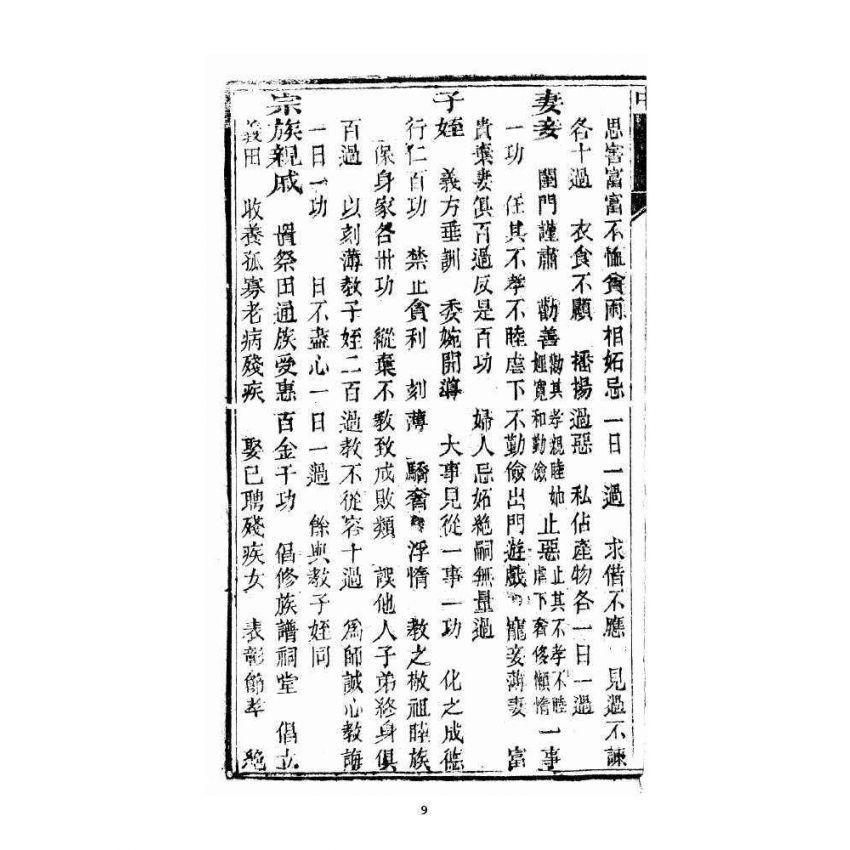 思害富富不恤貧兩相妬忌一日一過 求借不應 見過不諫
各十過 衣食不顧 播揚過惡 私佔產物各一日一過
妻妾 閨門謹肅 勸善勸其孝親睦妯娌寬和勤儉止惡止其不孝不睦虐下奢侈懶惰一事
一功 任其不孝不睦虐下不勤儉出門遊戲 寵妾薄妻 富
貴棄妻俱百過反是百功 婦人忌妬絶嗣無量過
子姪 義方垂訓 委婉開導 大事見從一事一功 化之成德
行仁百功 禁止貪利 刻薄 驕奢 浮惰 教之敬祖睦族
保身家各卅功 縱棄不教致成敗類 誤他人子弟終身俱
百過 以刻薄教子姪二百過教不從容十過 爲師誠心教誨
一日一功 日不盡心一日一過 餘與教子姪同
宗族親戚 置祭田通族受惠百金千功 倡修族譜祠堂 倡立
義田 收養孤寡老病殘疾 娶已聘殘疾女 表彰節孝 絶
9